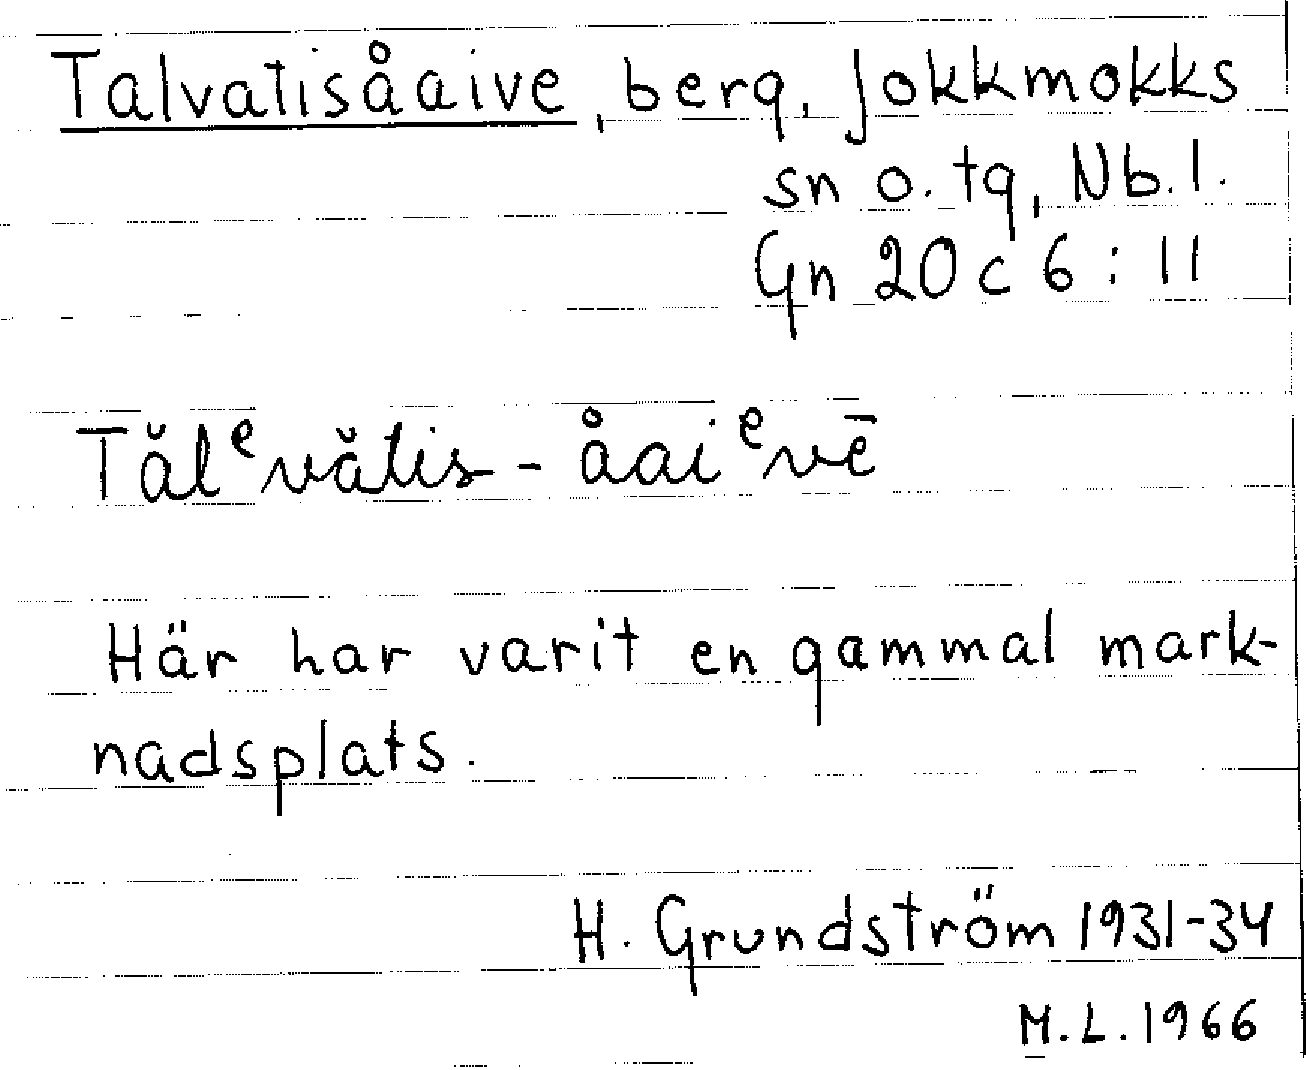 Talvatisåaive, berg, Jokkmokks
sn o. tg, Nb.l.
Gn 20 c 6 : 11
Tăl ͤvătis - åai ͤvē
Här har varit en gammal mark-
nadsplats.
H. Grundström 1931-34
M.L. 1966